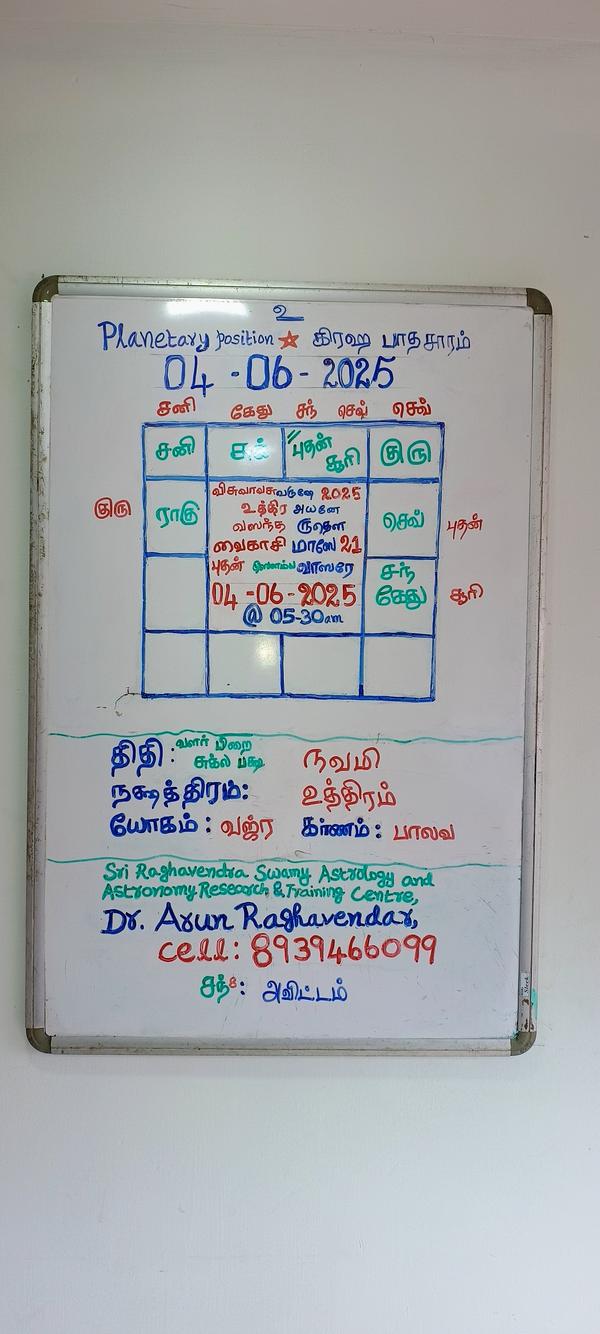 உ
Planetary position கிரஹ பாதசாரம்
04-06-2025
சனி கேது சந் செவ்
சனி புதன் சூரி குரு
விசுவாவசுவருஷே 2025
குரு ராகு உத்திர அயனே செவ் புதன்
வஸந்த ருதௌ
வைகாசி மாஸே 21
புதன் வாஸரே சந் கேது சூரி
04-06-2025
@ 05-30am
திதி: வளர் பிறை சுக்ல பக்ஷ நவமி
நக்ஷத்திரம்: உத்திரம்
யோகம்: வஜ்ர கர்ணம்: பாலவ
Sri Raghavendra Swamy Astrology and
Astronomy Research & Training Centre,
Dr. Arun Raghavendar,
cell: 8939466099
சந்8: அவிட்டம்